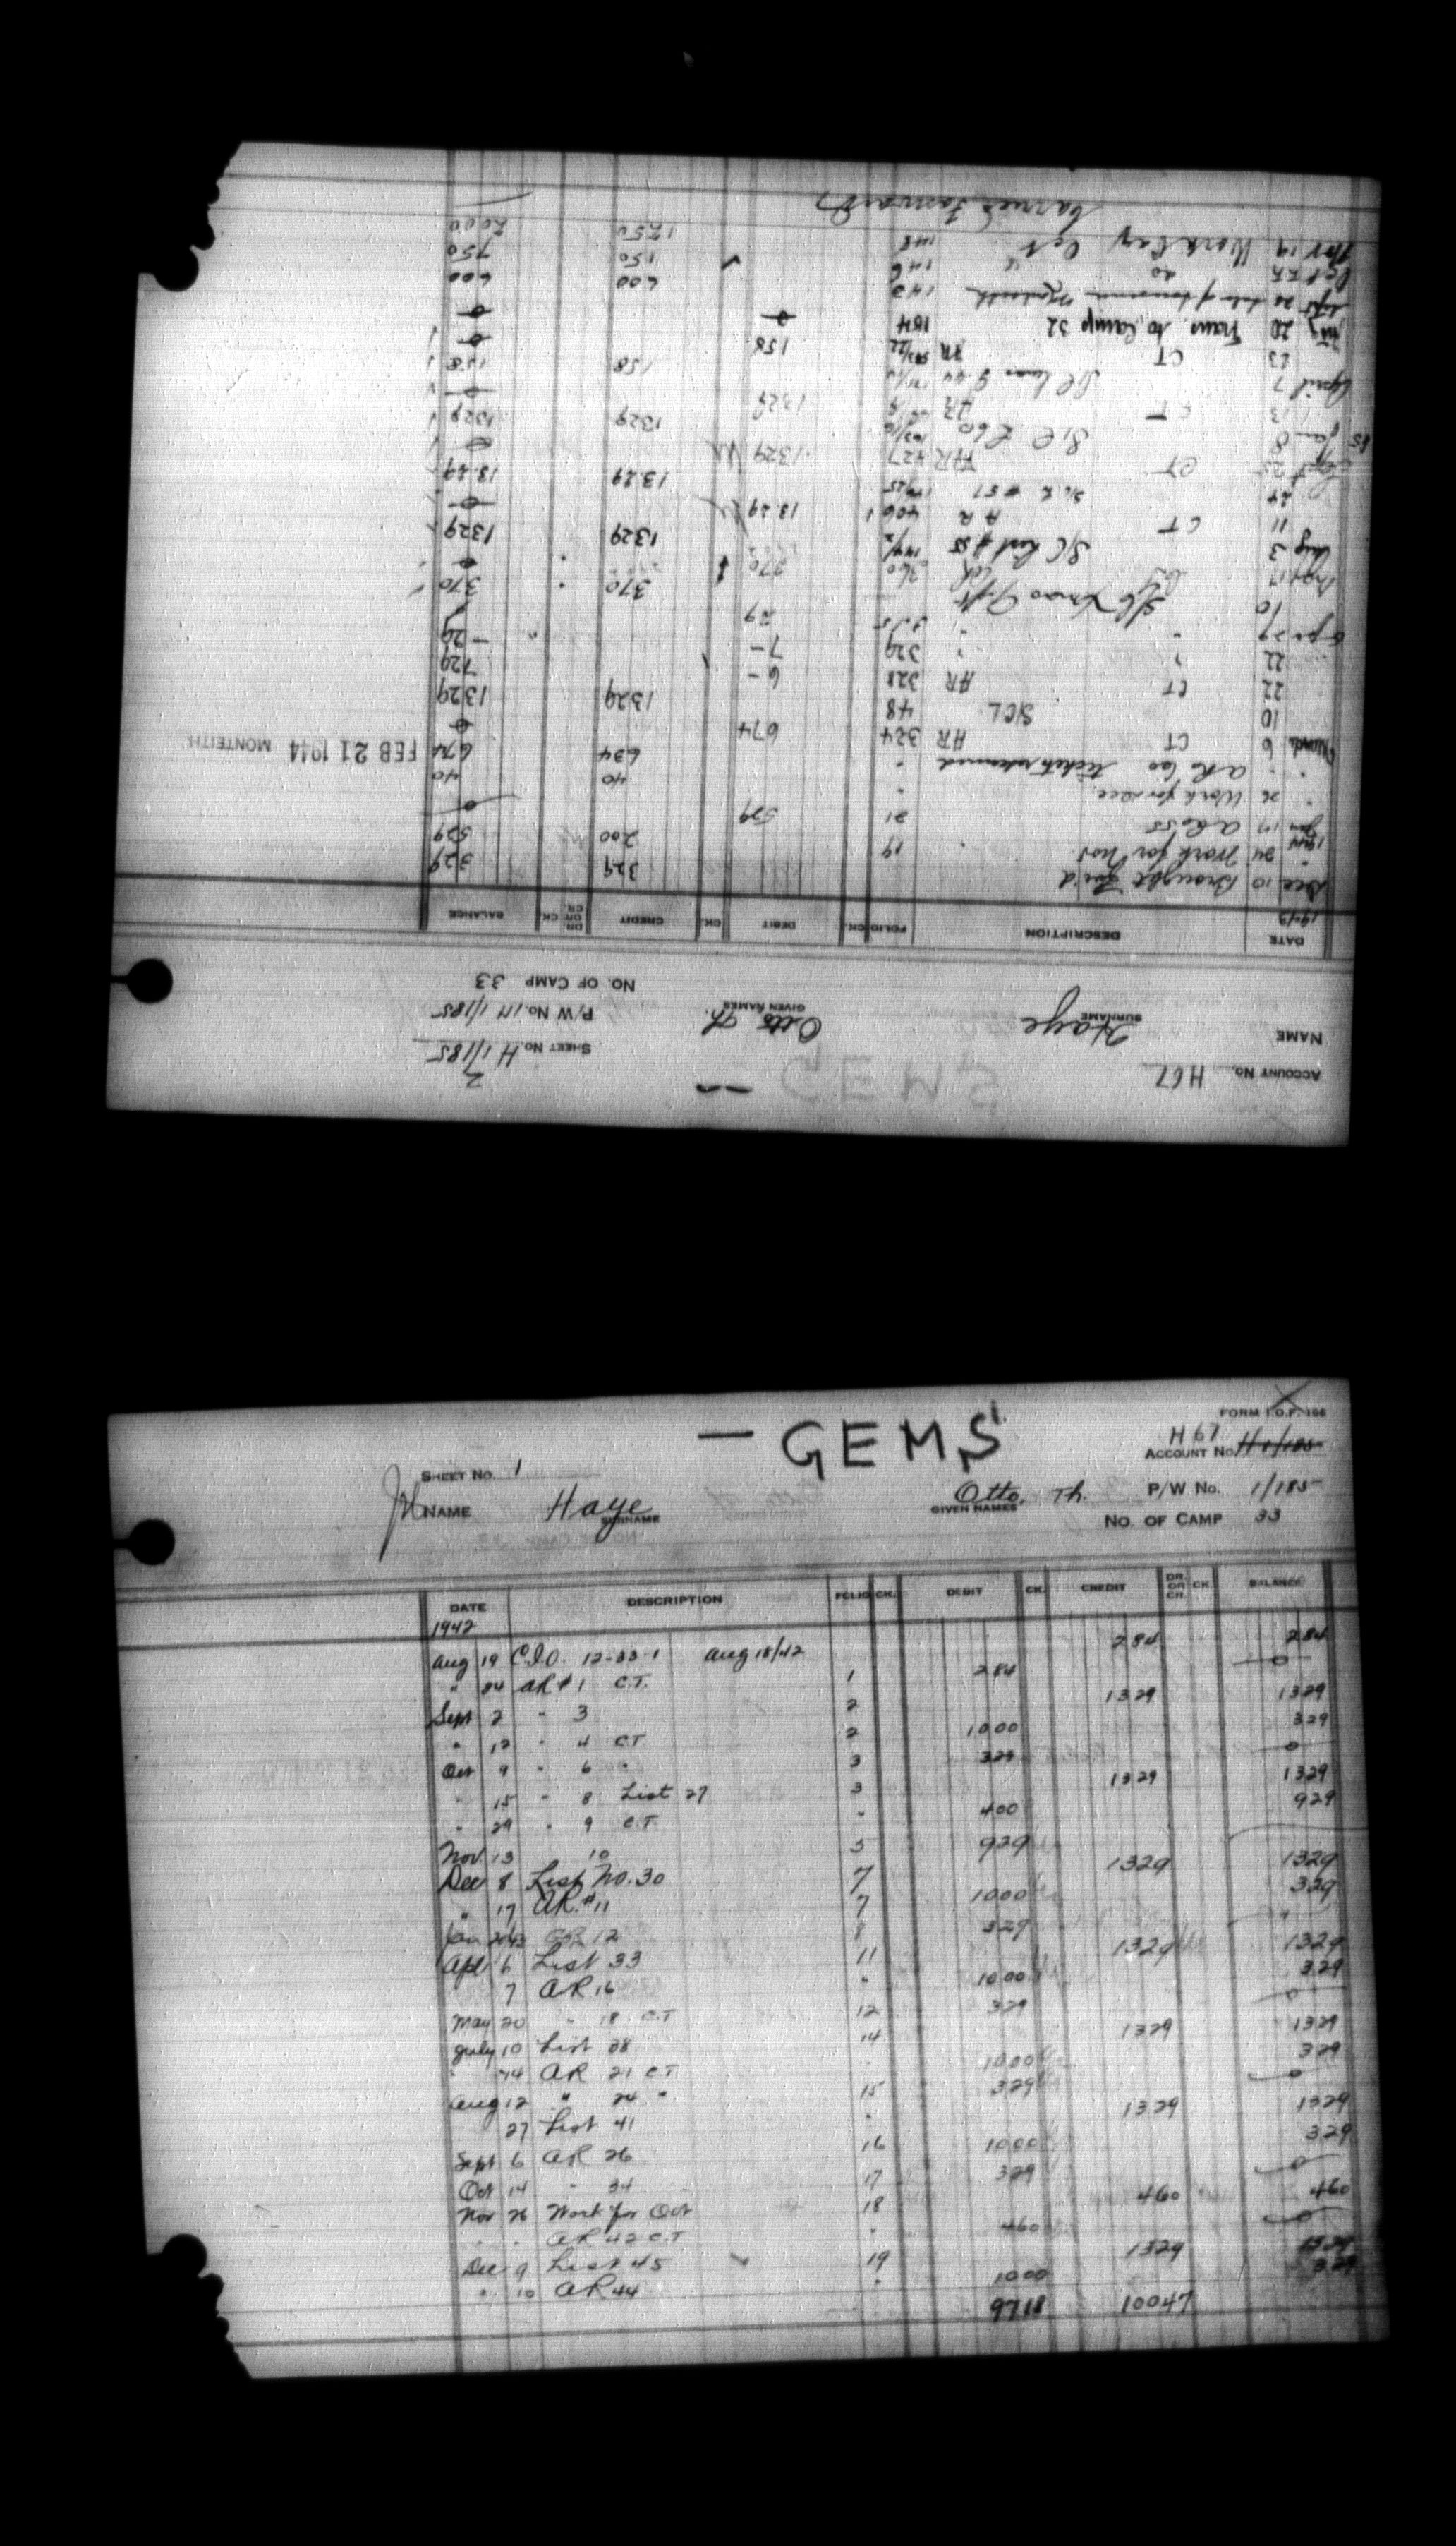 ACCOUNT No. H67
GEMS
2
SHEET No. H 1/185
NAME Haye SURNAME Otto Th. GIVEN NAMES P/W No. 1/185
NO. OF CAMP 33
DATE DESCRIPTION FOLIO CK. DEBIT CK. CREDIT DR. OR CR. CK. BALANCE
1943
Dec 10 Brought For'd 329 329
" 24 Work for Nov. 19 200 529
1944
Jan 17 AR 55 21 529 0
" 26 Work for Dec. " 40 40
" " AR 60 tickets returned " 634 674
FEB 21 1944 MONTEITH
March 6 CT AR 324 674 0
10 SCL 48 1329 1329
22 CT AR 328 6 - 729
22 " " 329 7 - - 29
Apr 29 " " 29
10 S/C Xmas Gift 370 370
17 360 370 0
Aug 3 S/C List # 55 1329 1329
11 CT AR 406 1329 0
24 S.C.L. # 57 1329 1329
Sept 25 CT AR 427 1329 0
45
Jan 8 S.C. L60 1329 1329
13 CT AR 1329 0
April 7 158 158
23 CT AR 158 0
20 Trans. to Camp 32 184 0 0
Sept 143 600 600
Oct do 146 150 750
Nov 19 Work Pay Oct 148 1250 2000
Carried Forward
FORM I.O.F. 166
GEMS
H 67
SHEET No. 1 ACCOUNT No. H 1/185
NAME Haye SURNAME Otto, Th. GIVEN NAMES P/W No. 1/185
No. OF CAMP 33
DATE DESCRIPTION FOLIO CK. DEBIT CK. CREDIT DR. OR CR. CK. BALANCE
1942
Aug 19 C.I.O. 12-33-1 Aug 18/42 284 284
" 24 AR # 1 C.T. 1 284 0
Sept 2 " 3 2 1329 1329
" 12 " 4 CT 2 1000 329
Oct 9 " 6 " 3 329 0
" 15 " 8 List 27 3 1329 1329
" 29 " 9 C.T. " 400 929
Nov 13 10 5 929
Dec 8 List No. 30 7 1329 1329
" 17 AR. # 11 7 1000 329
Jan 20/43 AR 12 8 329 0
Apl 6 List 33 11 1329 1329
7 AR 16 " 1000 329
May 20 " 18 C.T 12 329 0
July 10 List 38 14 1329 1329
" 14 AR 21 C.T " 1000 329
Aug 12 " 24 " 15 329 0
27 List 41 " 1329 1329
Sept 6 AR 26 16 1000 329
Oct 14 " 34 17 329 0
Nov 26 Work for Oct 18 460 460
" " AR 42 C.T " 460 0
Dec 9 List 45 19 1329 1329
" 10 AR 44 " 1000 329
9718 10047